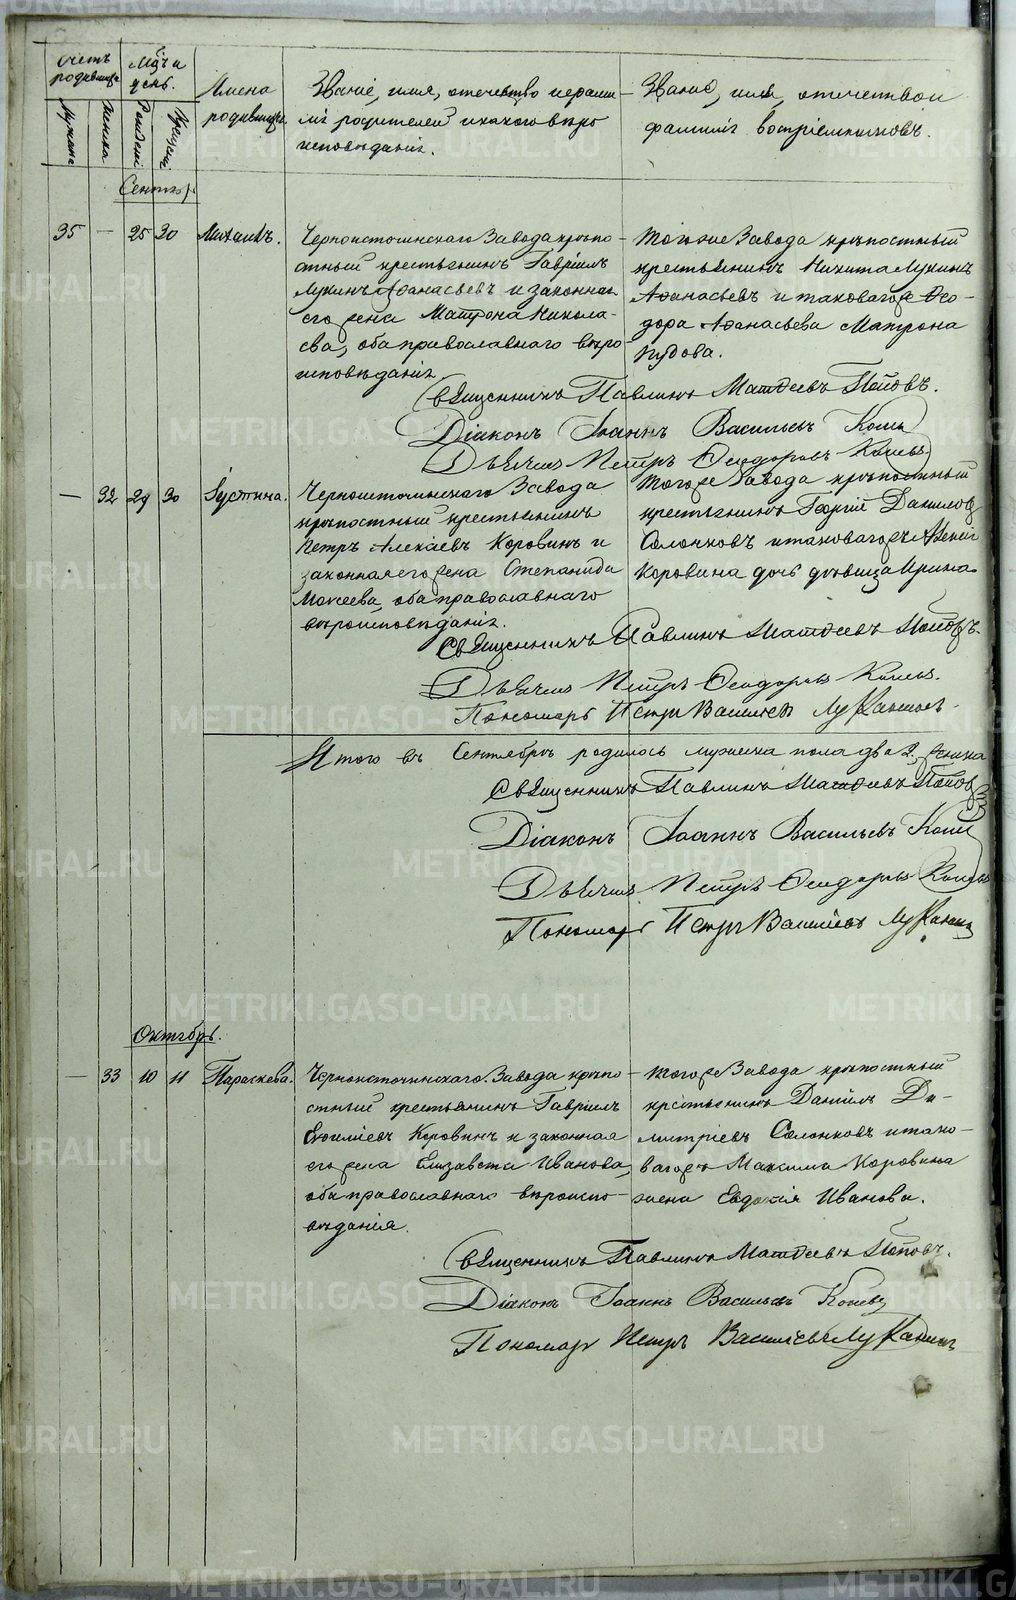 METRIKI.GASO-URAL.RU
Счетъ родившихся
Мѣсяцъ и день.
Имена родившихся.
Званіе, имя, отечество и фамилія родителей и какого вѣроисповѣданія.
Званіе, имя, отечество и фамилія воспріемниковъ.
Мужеска
Женска
Рожденія
Крещенія
Сентябр.
35 — 25 30 Михаилъ.
Черноисточинскаго Завода крѣпо-
стный крестьянинъ Гавріилъ
Лукинъ Аѳанасьевъ и законная
его жена Матрона Никола-
ева, оба православнаго вѣро-
исповѣданія.
Тогоже Завода крѣпостный
крестьянинъ Никита Лукинъ
Аѳанасьевъ и таковагожъ Ѳео-
дора Аѳанасьева Матрона
Священникъ Павлинъ Матѳеевъ Поповъ.
Діаконъ Іоаннъ Васильевъ
Дьячекъ Петръ Ѳеодоровъ
— 32 29 30 Іустина.
Черноисточинскаго Завода
крѣпостный крестьянинъ
Петръ Алексѣевъ Коровинъ и
законная его жена Степанида
Моисеева, оба православнаго
вѣроисповѣданія.
Тогоже Завода крѣпостный
крестьянинъ Георгій Даниловъ
Солонковъ и таковагожъ
Коровина дочь дѣвица Ирина.
Священникъ Павлинъ Матѳеевъ Поповъ.
Дьячекъ Петръ Ѳеодоровъ
Пономарь Петръ Васильевъ Луканинъ
Итого въ Сентябрѣ родилось мужеска пола два 2. женска
Священникъ Павлинъ Матѳеевъ Поповъ
Діаконъ Іоаннъ Васильевъ
Дьячекъ Петръ Ѳеодоровъ
Пономарь Петръ Васильевъ Луканинъ
Октябрь.
— 33 10 11 Параскева.
Черноисточинскаго Завода крѣпо-
стный крестьянинъ Гавріилъ
Коровинъ и законная
его жена Елизавета Иванова,
оба православнаго вѣроиспо-
вѣданія.
Тогоже Завода крѣпостный
крестьянинъ Даніилъ Ди-
митріевъ Солонковъ и тако-
вагожъ Максима Коровина
жена Евдокія Иванова.
Священникъ Павлинъ Матѳеевъ Поповъ.
Діаконъ Іоаннъ Васильевъ
Пономарь Петръ Васильевъ Луканинъ